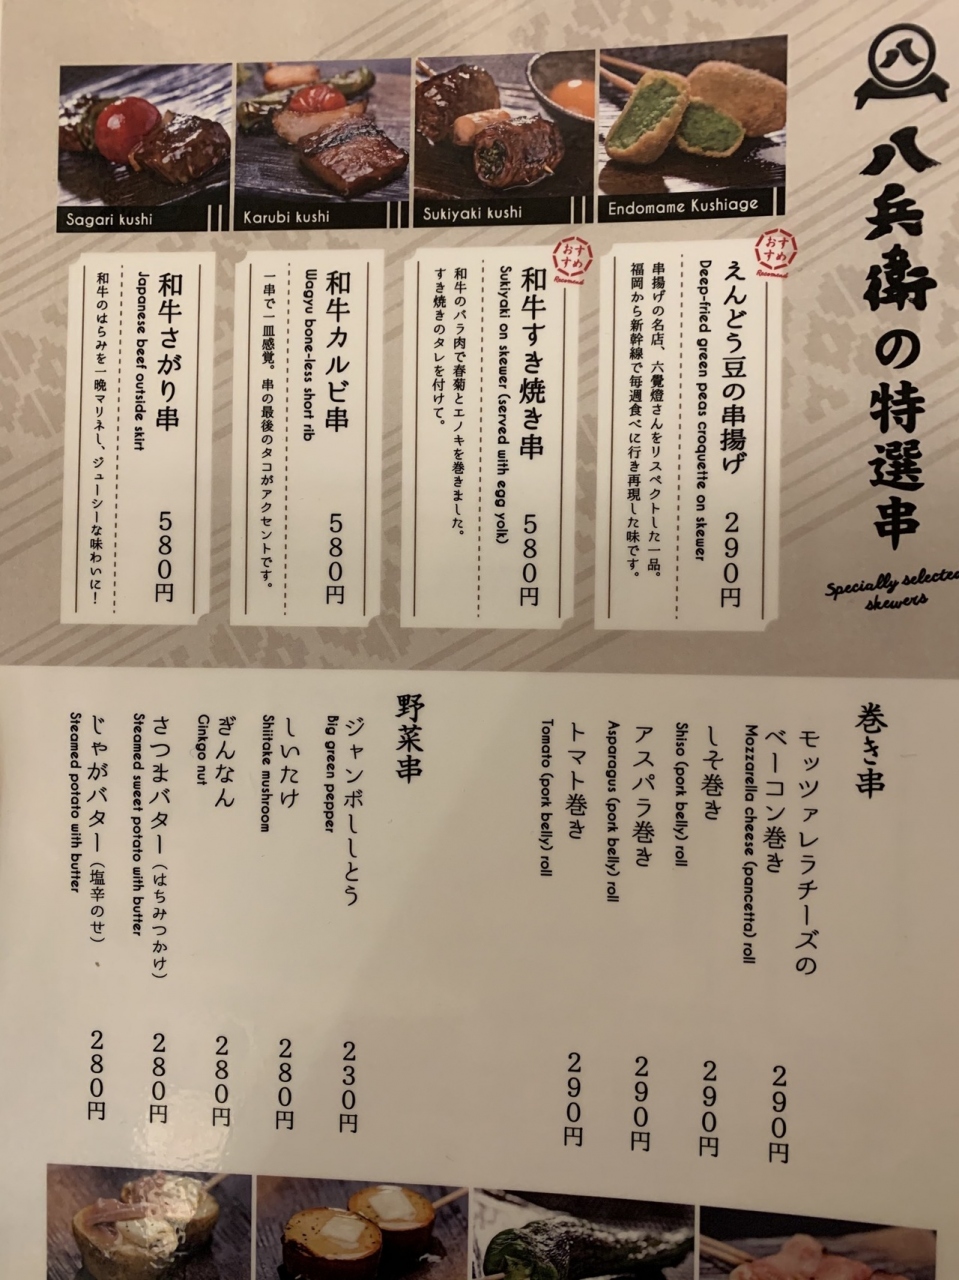 八
八兵衛の特選串
Specially selected
skewers
Endomame Kushiage
Sukiyaki kushi
Karubi kushi
Sagari kushi
おすすめ
Recommend
えんどう豆の串揚げ 290円
Deep-fried green peas croquette on skewer
串揚げの名店、六覺燈さんをリスペクトした一品。
福岡から新幹線で毎週食べに行き再現した味です。
おすすめ
Recommend
和牛すき焼き串 580円
Sukiyaki on skewer (served with egg yolk)
和牛のバラ肉で春菊とエノキを巻きました。
すき焼きのタレを付けて。
和牛カルビ串 580円
Wagyu bone-less short rib
一串で一皿感覚。串の最後のタコがアクセントです。
和牛さがり串 580円
Japanese beef outside skirt
和牛のはらみを一晩マリネし、ジューシーな味わいに!
巻き串
モッツァレラチーズの
ベーコン巻き 290円
Mozzarella cheese (pancetta) roll
しそ巻き 290円
Shiso (pork belly) roll
アスパラ巻き 290円
Asparagus (pork belly) roll
トマト巻き 290円
Tomato (pork belly) roll
野菜串
ジャンボししとう 230円
Big green pepper
しいたけ 280円
Shiitake mushroom
ぎんなん 280円
Ginkgo nut
さつまバター(はちみつかけ) 280円
Steamed sweet potato with butter
じゃがバター(塩辛のせ) 280円
Steamed potato with butter